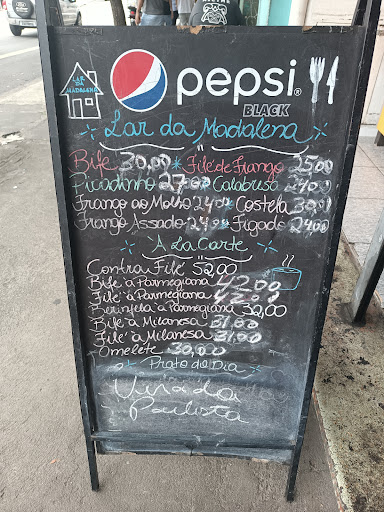 LAR DA MADALENA
pepsi
BLACK
Lar da Madalena
Bife 30,00 * Filé de Frango 25,00
Picadinho 27,00 * Calabresa 24,00
Frango ao Molho 24,00 * Costela 30,00
Frango Assado 24,00 * Figado 24,00
A La Carte
Contra Filé 52,00
Bife á Parmegiana 42,00
Filé á Parmegiana 42,00
Berinjela á Parmegiana 32,00
Bife á Milanesa 31,00
Filé á Milanesa 31,00
Omelete 30,00
Prato do Dia
Virado a
Paulista